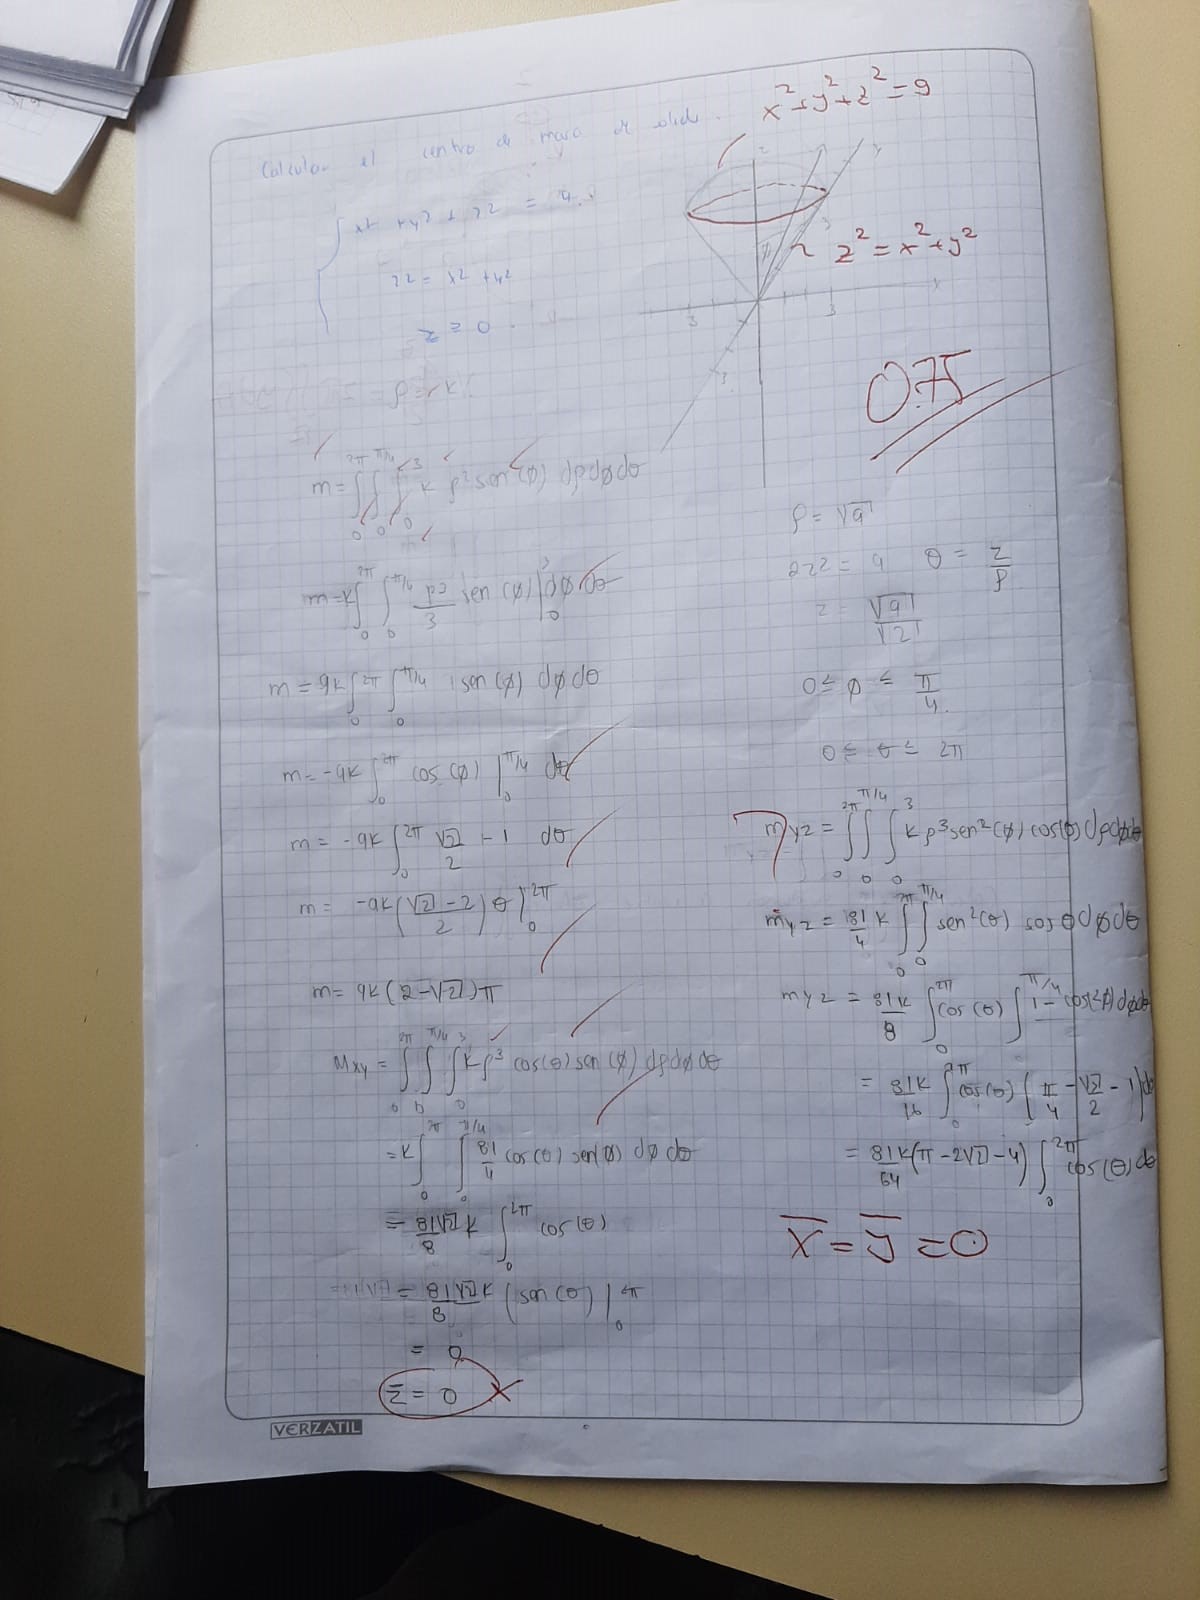 Calcular el centro de masa de solido.
x² + y² + z² = 9
x² + y² + z² = 9.
z² = x² + y²
z² = x² + y²
z ≥ 0.
3
3
0.75
m = ∫₀^2π ∫₀^π/4 ∫₀^3 k ρ² sen(φ) dρdφdθ
ρ = √9
2z² = 9 θ = z/ρ
m = k∫₀^2π ∫₀^π/4 ρ³/3 sen(φ)|₀^3 dφ dθ
z = √9/√2
m = 9k∫₀^2π ∫₀^π/4 sen(φ) dφdθ
0 ≤ φ ≤ π/4.
m = -9k∫₀^2π cos(φ)|₀^π/4 dθ
0 ≤ θ ≤ 2π
m = -9k∫₀^2π √2/2 - 1 dθ
m = -9k(√2-2/2)θ|₀^2π
m = 9k(2-√2)π
Mxy = ∫₀^2π ∫₀^π/4 ∫₀^3 kρ³ cos(θ) sen(φ) dρdφdθ
= k∫₀^2π ∫₀^π/4 81/4 cos(θ) sen(φ) dφ dθ
= 81√2/8 k ∫₀^2π cos(θ)
= 81√2k/8 (sen(θ)|₀^π
= 0
z̄ = 0
myz = ∫₀^2π ∫₀^π/4 ∫₀^3 kρ³sen²(φ) cos(θ) dρdφdθ
myz = 81/4 k ∫₀^2π ∫₀^π/4 sen²(θ) cos θ dφdθ
myz = 81k/8 ∫₀^2π cos(θ) ∫^π/4 1-cos(2φ) dφdθ
= 81k/16 ∫₀^2π cos(θ) (π/4 - √2/2 - 1) dθ
= 81k/64 (π-2√2-4) ∫₀^2π cos(θ) dθ
x̄ = ȳ = 0
VERZATIL